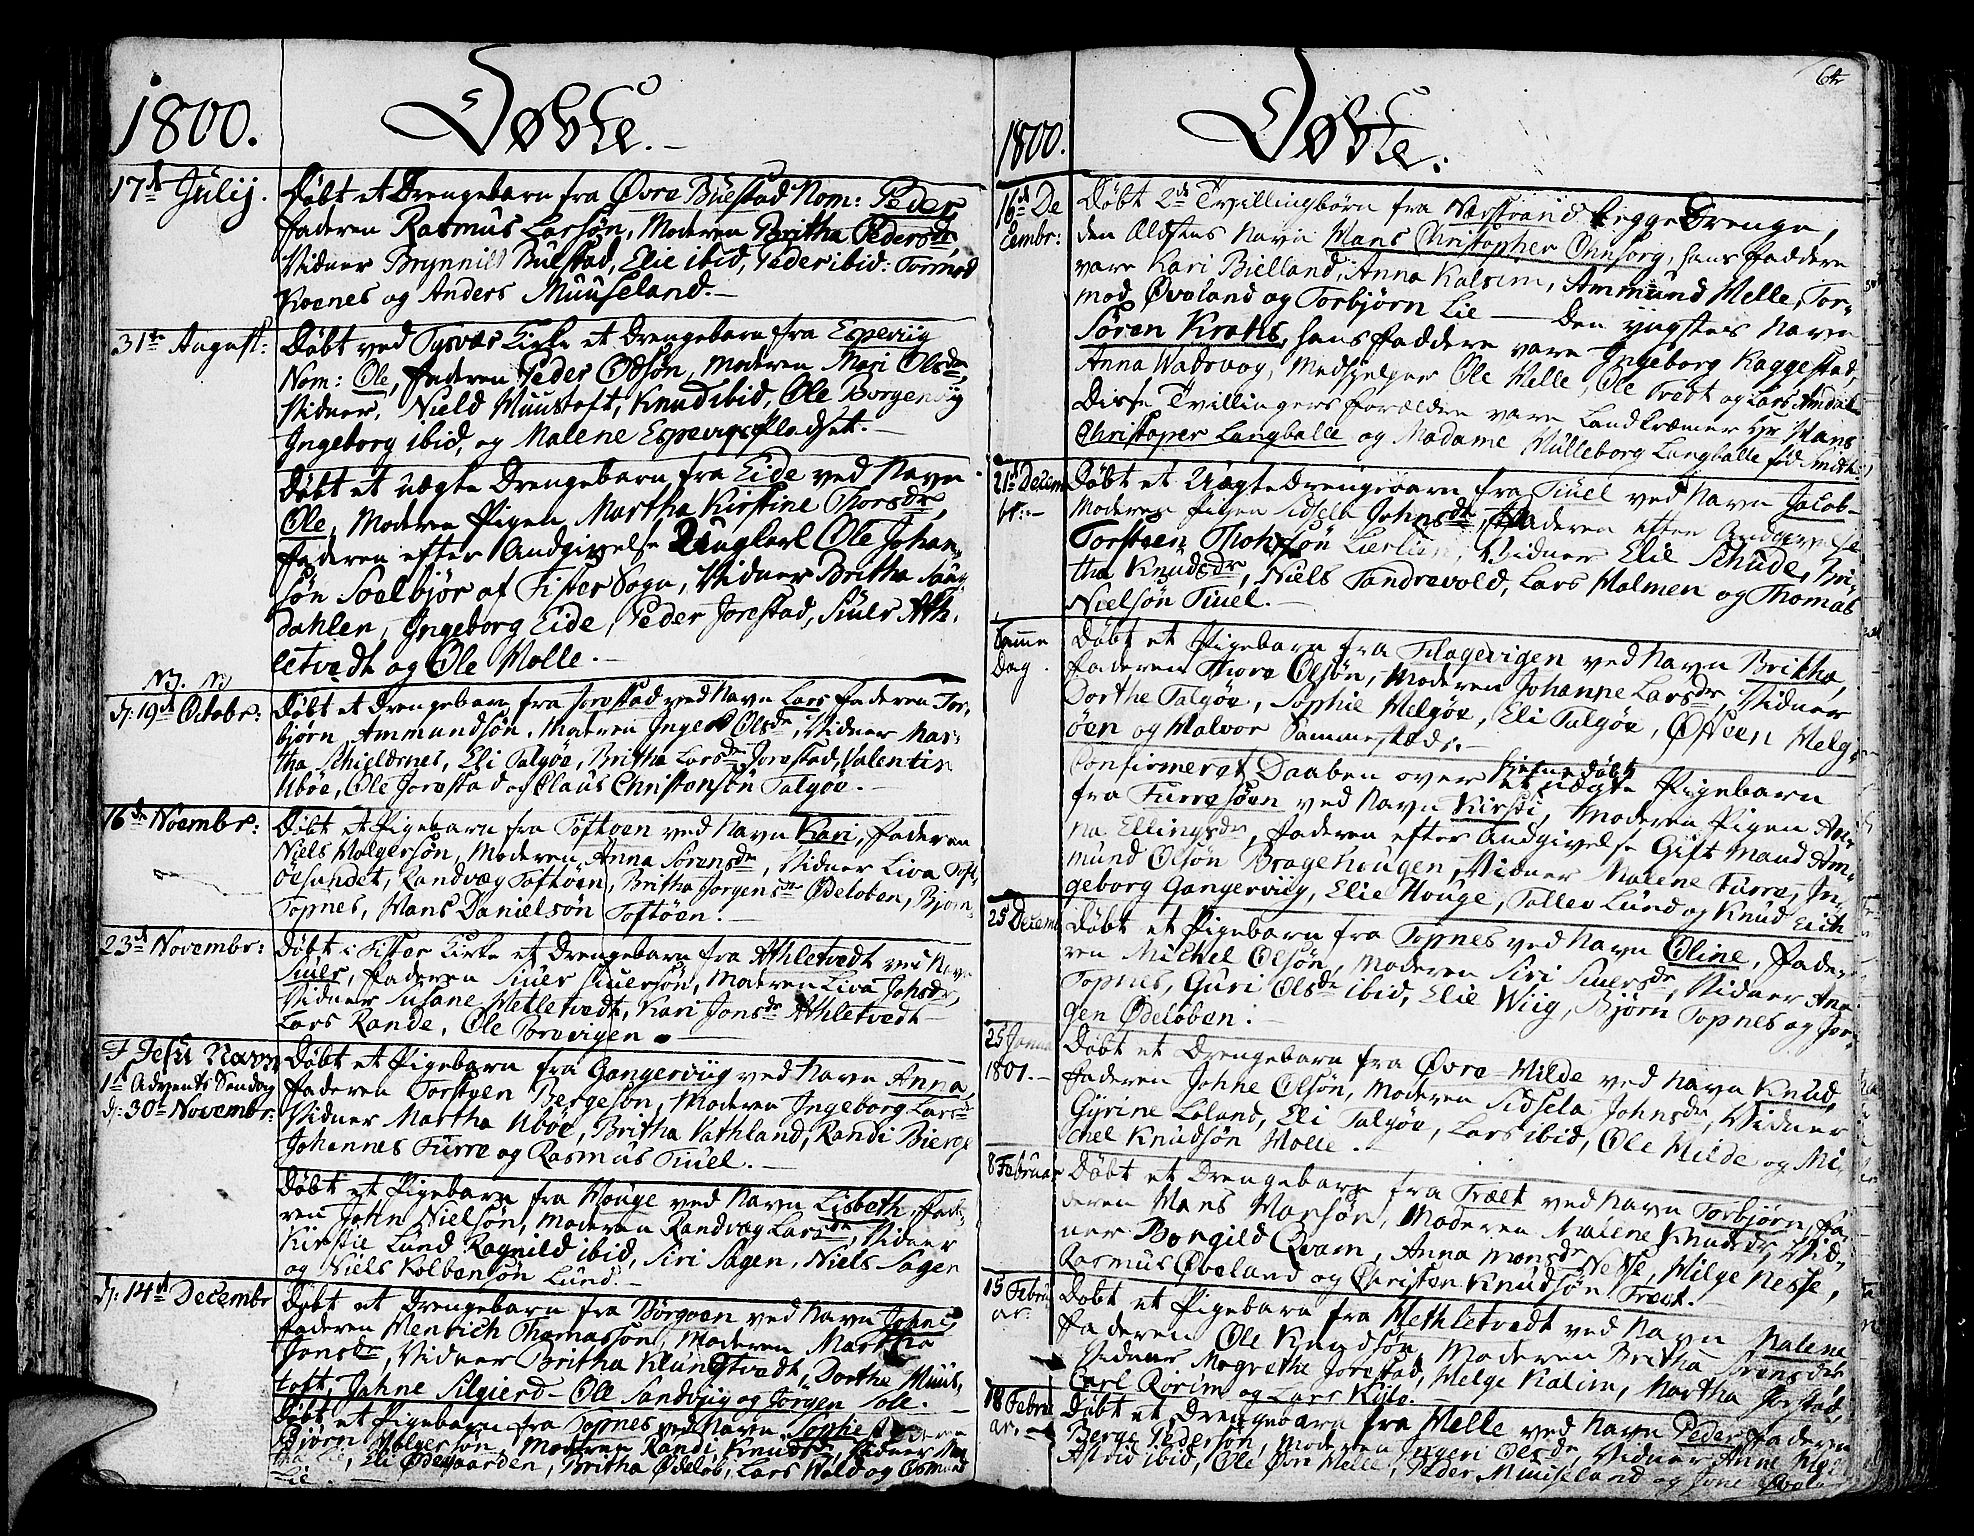 1800. Døbte.
17de Julij. Døbt et Drengebarn fra Øvre Buestad Nom: Peder
faderen Rasmus Larsøn, Moderen Britha Pedersdr,
Vidner Brynnild Buestad, Elie ibid, Peder ibid: Tormod
Koenes og Anders Muuseland.-
31te August: Døbt ved Tysvær Kirke et Drengebarn fra Espeviig
Nom: Ole, faderen Peder Odsøn, Moderen Mari Olsdr,
Vidner, Nield Muustoft, Knud ibid, Ole Borgenvig
Ingeborg ibid, og Malene Espevigs Pladset.-
Døbt et uægte Drengebarn fra Eide ved Navn
Ole, Moderen Pigen Martha Kirstine Thorsdr,
faderen efter Andgivelse Ungkarl Ole Johan-
søn Soelbjør af Fister Sogn, Vidner Britha Saug
Dahlen, Ingeborg Eide, Peder Jorestad, Siuer Ath,
letvedt og Ole Molle.-
NJ. NJ
d: 19de Octobr: Døbt et Drengebarn fra Jorestad ved Navn Lars faderen Tor-
biørn Ammundsøn, Moderen Inger Olsdr, Vidner Mar-
tha Schieldernes, Eli Talgøe, Britha Larsdr Jorestad, Valentin
Ubøe, Ole Jorestad og Claus Christensøn Talgøe.
16de Novembr: Døbt et Pigebarn fra Toftøen ved Navn Kari, faderen
Niels Holgersøn, Moderen Anna Sørensdr, Vidner Liva Toft,
øesundet, Randvæg Toftøen, Britha Jørgensdr Ødeløben, Bjørn
Topnes, Hans Danielsøn Toftøen.-
23de Novembr: Døbt i Fister Kirke et Drengebarn fra Athletvedt ved Navn
Siuer, faderen Siuer Siuersøn, Moderen Liva Johsdr,
Vidner Susane Metletvedt, Kari Jonsdr Athletvedt
Lars Rande, Ole Torevigen.-
I Jesu Navn
1te Advents Søndag
d: 30te Novembr: Døbt et Pigebarn fra Gangerviig ved Navn Anna,
faderen Torsteen Bergesøn, Moderen Ingeborg Larsdr
Vidner Martha Ubøe, Britha Vathland, Randi Bierge
Johannes Furre og Rasmus Tiuel.-
Døbt et Pigebarn fra Houge ved Navn Lisbeth, fade-
ren John Nielsøn, Moderen Randvæg Larsdr, Vidner
Kirstie Lund Ragnild ibid, Siri Sagen, Niels Sagen
og Niels Kolbensøn Lund.-
d: 14de Decembr Døbt et Drengebarn fra Børgøen ved Navn Johne
faderen Henrich Thomassøn, Moderen Martha
Jonsdr, Vidner Britha Klungtvedt, Dorthe Muus,
toft, Jahne Silgierd- Ole Sandviig og Jørgen Sole.-
Døbt et Pigebarn fra Topnes ved Navn Sophie faderen
Bjørn Holgersøn, Moderen Randi Knudsdr, Vidner Mar
tha Lie, Eli Ødegaarden, Britha Ødeløb, Lars Hald og Osmund
Lie
1800. Døbte. 64
16de De
cembr: Døbt 2de Tvillingbørn fra Nærstrand begge Drenge,
den Ældstes Navn Hans Christopher Onnsorg, hans faddere
vare Kari Bielland, Anna Kalsem, Ammund Helle, Tor-
mod Øveland og Torbjørn Lie - Den yngstes Navn
Søren Krohs, hans faddere vare Ingeborg Raggestad,
Anna Wadsvog, Medhielper Ole Helle, Ole Trødt og Lars Amdal
Disse Tvillingers forældre vare Landkræmer Hr Hans
Christoper Langballe og Madame Mülleborg Langballe fød Smith.
21de Decem
br:- Døbt et Uægte Drengebarn fra Tiuel ved Navn Jacob-
Moderen Pigen Sidsela Johnsdr, faderen efter Andgivelse
Torsteen Liarlien, Vidner Elie Schude, Bri-
tha Knudsdr, Niels Tandrevold, Lars Malmen og Thomas
Nielsøn Tiuel.-
Samme
Dag. Døbt et Pigebarn fra Tilagevigen ved Navn Britha,
faderen Thore Olsøn, Moderen Johanne Larsdr, Vidner
Dorthe Talgøe, Sophie Helgøe, Eli Talgøe, Østeen Helg,
øen og Halvor Sammesteds.-
Confirmeret Daaben over hjemmedøbt
et uægte Pigebarn
fra Furresøen ved Navn Kirsti, Moderen Pigen An-
na Ellingsdr, faderen efter Andgivelse Gift Mand Am-
mund Olsøn Bragehougen, Vidner Malene Furre, In-
geborg Gangerviig, Elie Houge, Tollev Lund og Knud Eich
25 Decemb Døbt et Pigebarn fra Topnes ved Navn Oline, fade-
ren Michel Olsøn, Moderen Siri Siuersdr, Vidner Ane
Topnes, Guri Olsdr ibid, Elie Wiig, Bjørn Topnes og Jør-
gen Ødeløben.-
25 Janua
1801.- Døbt et Drengebarn fra Øvre-Hilde ved Navn Knud,
faderen Johne Olsøn, Moderen Sidsela Johnsdr, Vidner
Gyrine Loland, Eli Talgøe, Lars ibid, Ole Hilde og Mi-
chel Knudsøn Molle.-
8 Februar Døbt et Drengebarn fra Træet ved Navn Torbjørn, fa-
deren Hans Hansøn, Moderen Malene Knudsdr, Vid-
ner Borgild Qvam, Anna Monsdr Nesse, Hilge Nesse,
Rasmus Øveland og Christen Knudsøn Træet.-
15 Febru
ar: Døbt et Pigebarn fra Methletvedt ved Navn Malene
faderen Ole Knudsøn, Moderen Britha Sørensdr
Vidner Magrethe Jorestad, Helge Kalim, Martha Jorstad,
Carl Rorim og Lars Kielo.
18 Febru
ar.- Døbt et Drengebarn fra Helle ved Navn Peder faderen
Berge Pedersøn, Moderen Ingeri Olsdr, Vidner Anne Helle
Astrid ibid, Ole Øvre Helle, Peder Muuseland og Jone